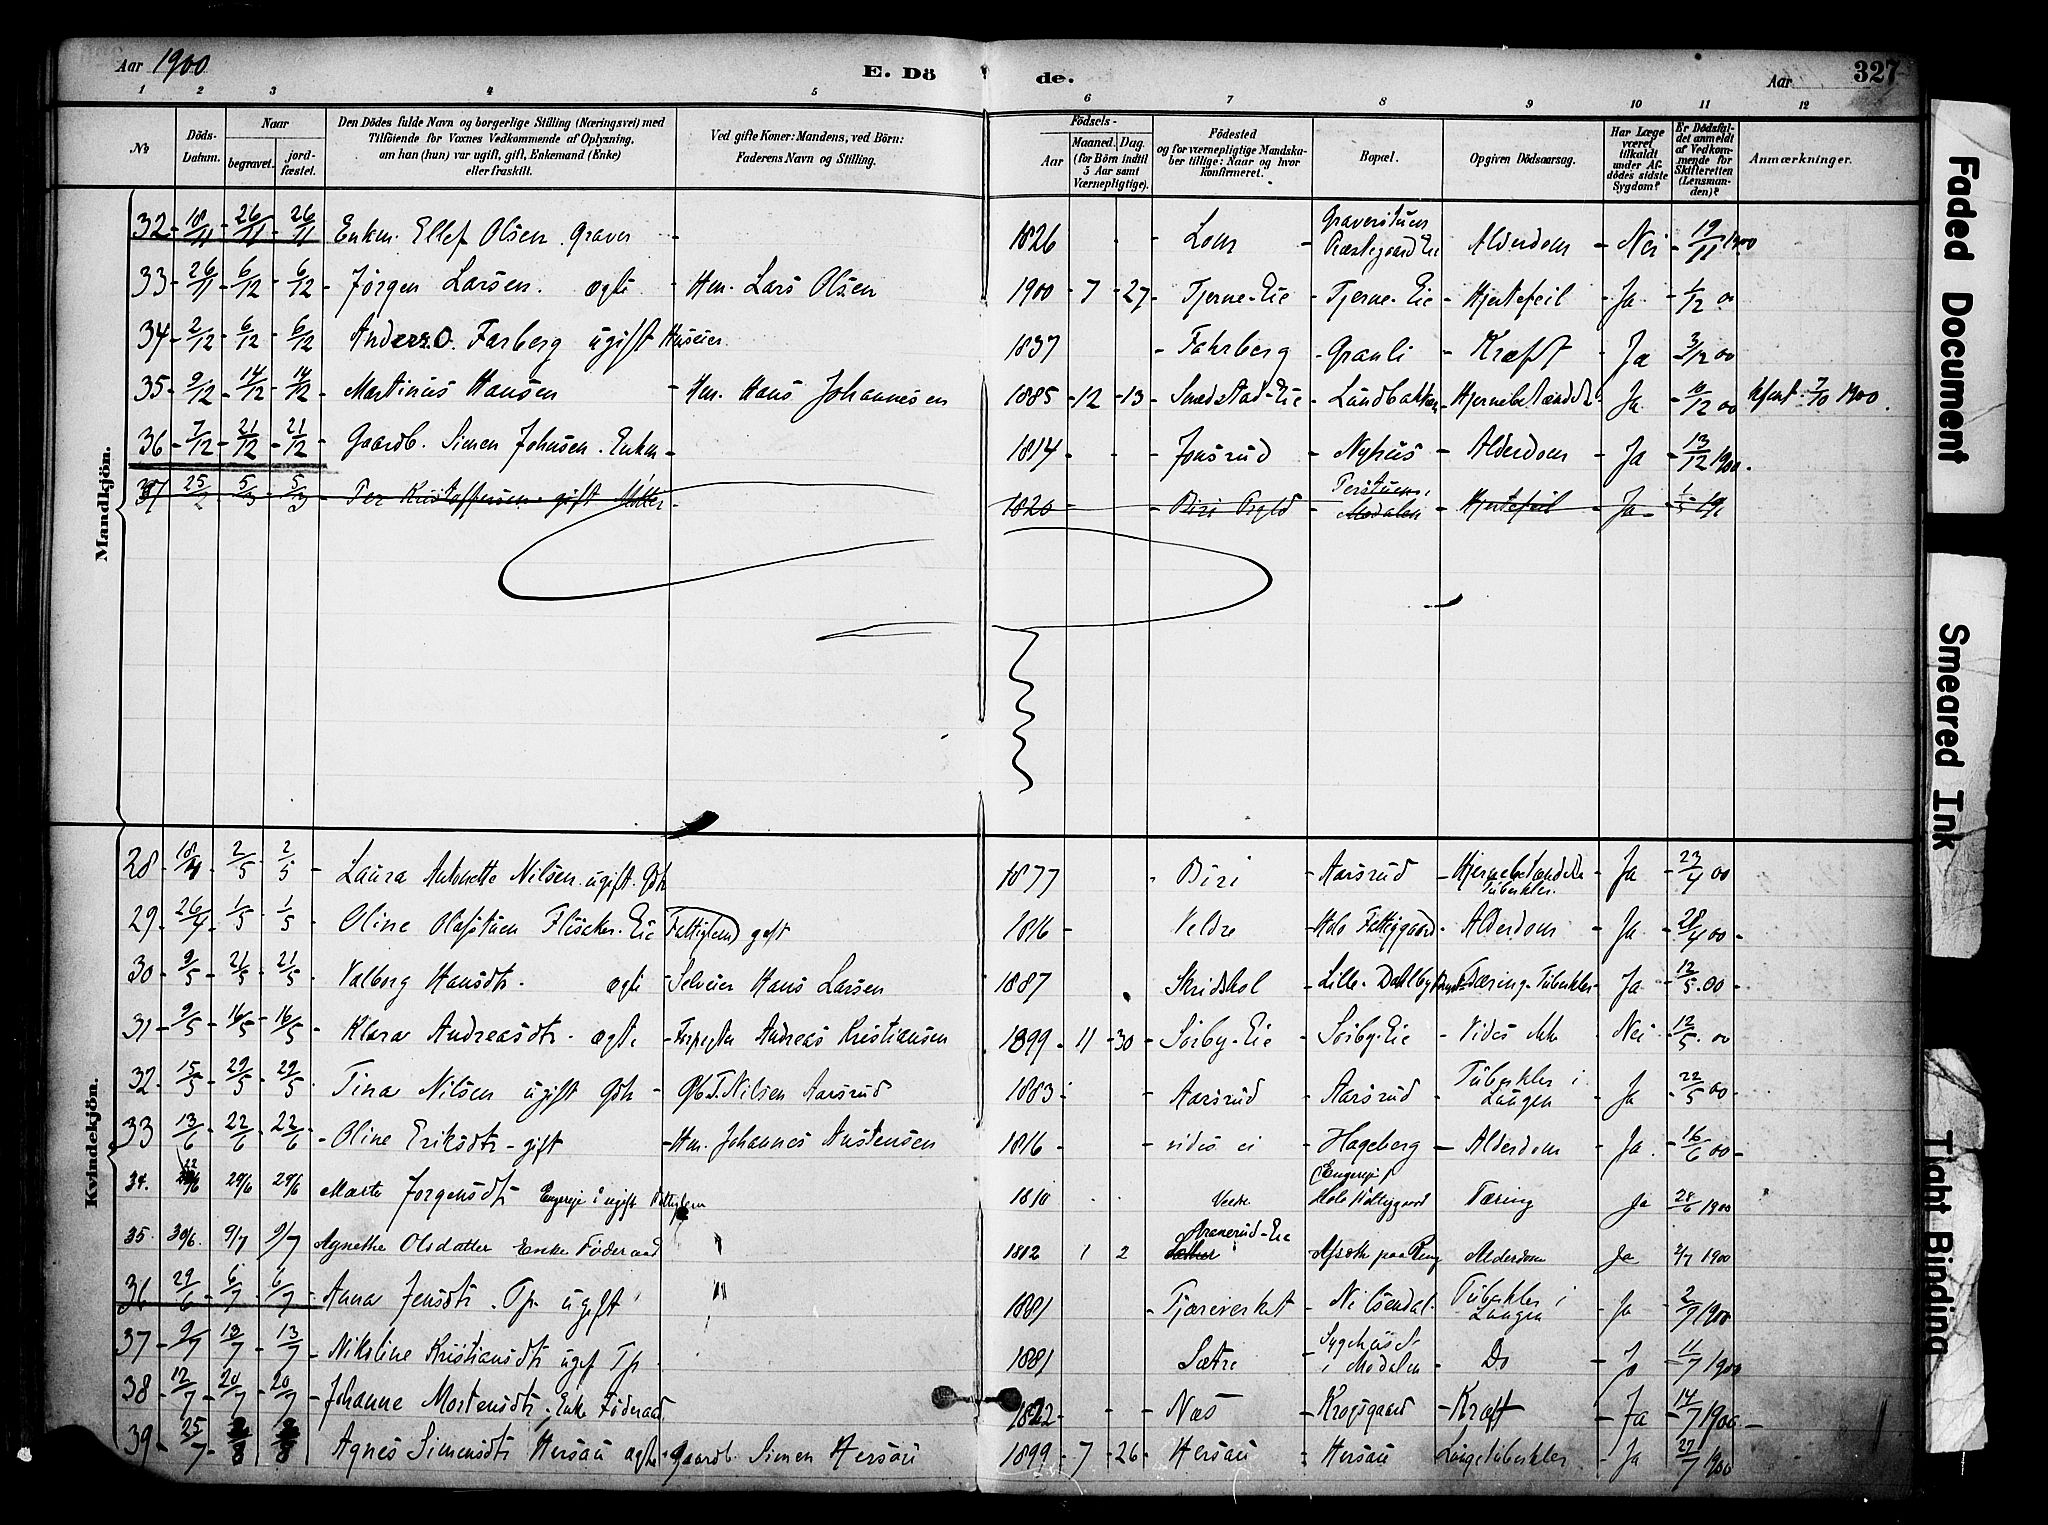 Aar 1900
E. Dö de.
Aar
327
1 2 3 4 5 6 7 8 9 10 11 12
No
Döds-Datum.
Naar
begravet.
jord-fæstet.
Den Dödes fulde Navn og borgerlige Stilling (Næringsvei) med
Tilföiende for Voxnes Vedkommende af Oplysning,
om han (hun) var ugift, gift, Enkemand (Enke)
eller fraskilt.
Ved gifte Koner: Mandens, ved Börn:
Faderens Navn og Stilling.
Födsels-
Aar
Maaned. Dag.
(for Börn indtil
5 Aar samt
Værnepligtige).
Födested
og for værnepligtige Mandska-
ber tillige: Naar og hvor
konfirmeret.
Bopæl.
Opgiven Dödsaarsag.
Har Læge
været
tilkaldt
under Af-
dödes sidste
Sygdom?
Er Dödsfal-
det anmeldt
af Vedkom-
mende for
Skifteretten
(Lensman-
den)?
Anmærkninger.
Mandkjön.
32 - 18/11 - 26/11 - 26/11 - Enkm. Ellef Olsen Graver - 1826 - - - Lom - Graverstuen Præstegaard Eie - Alderdom - Nei - 19/11 1900
33 - 26/11 - 6/12 - 6/12 - Jørgen Larsen. ægte - Hm. Lars Olsen 1900 - 7 - 27 - Tjerne-Eie - Tjerne-Eie - Hjertefeil - Ja - 1/12 00
34 - 2/12 - 6/12 - 6/12 - Anders O. Farberg ugift Huseier 1837 - Fahrberg - Granli - Kræft - Ja - 3/12 00
35 - 9/12 - 14/12 - 14/12 - Martinus Hansen - Hm. Hans Johannesen 1885 - 12 - 13 - Smedstad-Eie - Lundbakken - Hjernebetændelse - Ja - 10/12 00 7/10 1900.
36 - 7/12 - 21/12 - 21/12 - Gaardb. Simen Johnsen. Enkm - 1814 - - - Jonsrud - Nyhus - Alderdom - Ja - 13/12 1900.
37 25/2 - 5/3 - 5/3 - Per Kristoffersen gift - 1820 - Biri - Perstuen, Modalen - Hjertefeil - Ja -
Kvindekjön.
28 - 18/4 - 2/5 - 2/5 - Laura Antonette Nilsen. ugift. Gdr 1877 - Biri - Aarsrud - Hjernebetændelse Tuberkler. - Ja - 23/4 00
29 - 26/4 - 1/5 - 1/5 - Oline Olafstuen Eie Fattiglem gift 1816 - Veldre - Holo Fattiggaard - Alderdom - Ja - 28/4 00 -
30 - 9/5 - 21/5 - 21/5 - Valborg Hansdtr. ægte - Selveier Hans Larsen 1887 Skridshol - Lille-Dahlby - Tæring - Tuberkler - Ja - 12/5 00 -
31 - 9/5 - 16/5 - 16/5 - Klara Andreasdtr - ægte - Forpagter Andreas Kristiansen - 1899 - 11 - 30 - Sörby-Eie - Sörby-Eie - Vides ikke - Nei - 12/5 00
32 - 15/5 - 22/5 - 22/5 - Tina Nilsen ugift Gdr - Gb. T. Nilsen Aarsrud 1883 - Aarsrud - Aarsrud - Tuberkler i Lungen - Ja - 22/5 00 -
33 - 13/6 - 22/6 - 22/6 - Oline Eriksdtr - gift - Hm. Johannes Austensen 1816 - vides ei - Hageberg - Alderdom - Ja - 16/6 00 -
34. 22/6 29/6 29/6 Marte Jorgensdtr Engereje i ugift Fattiglem 1810 Veldre Engereje Holo Fattiggaard Tæring Ja 28/6 1900
35. 30/6. 9/7 9/7 Agnethe Olsdatter Enke Föderaad " 1812 1 2 -Eie Alderdom Ja 2/7 1900
36 29/6 - 6/7 - 6/7 - Anna Jensdtr. Tp. ugift " 1881 - Tjæreverket - Nilsendal - Tuberkler i Lungen - Ja - 2/7 1900
37 - 9/7 - 13/7 - 13/7 - Nikoline Kristiansdtr ugif Tp - 1881 Sætre - Sygehuset i Modalen - Do - Jo - 11/7 1900
38 - 12/7 - 20/7 - 20/7 - Johanne Mortensdtr, Enke Föderaad. 1822 - - - Næs - Krogsgaard - Kræft - Ja - 14/7 1900 -
39 - 25/7 - 2/8 - 2/8 - Agnes Simensdtr Hersau ægte - Gaardb. Simen Hersau 1899 - 7 - 26 - Hersau - Hersau Lungetuberkler. - Ja - 27/7 1900
Faded Document
Smeared Ink
Tight Binding